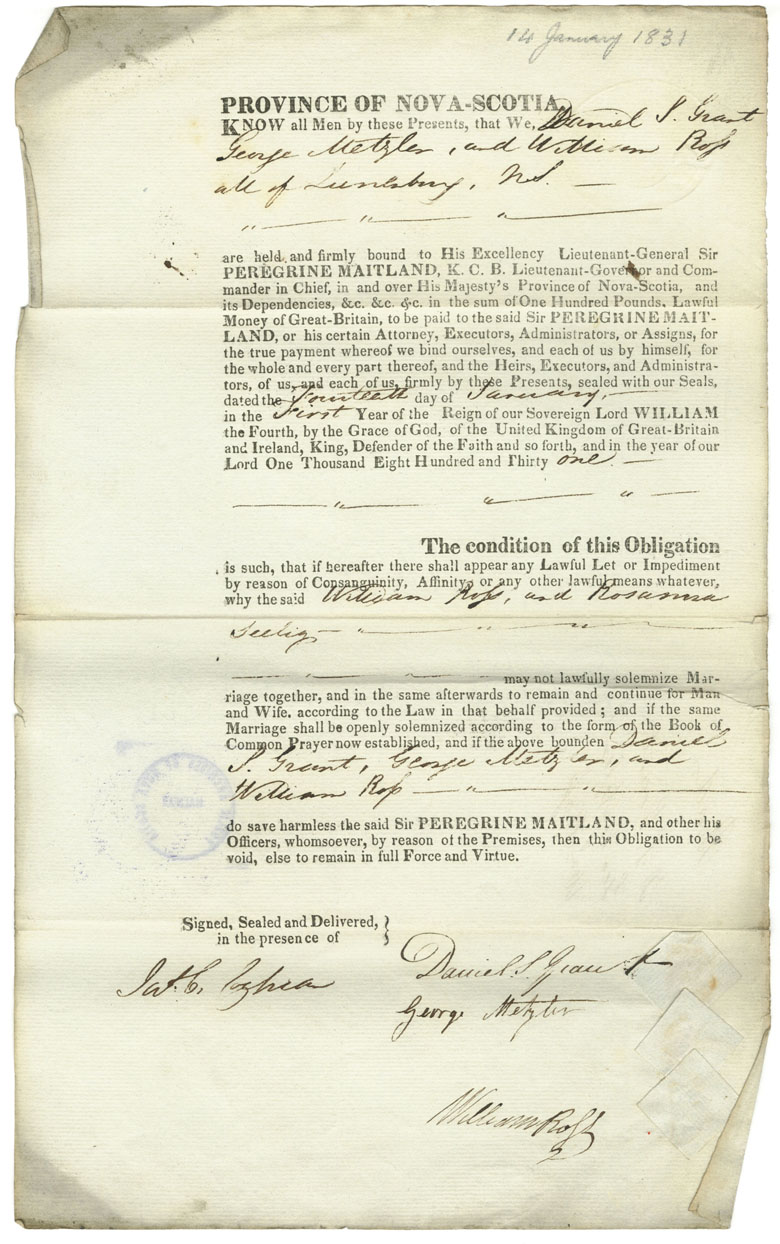 14 January 1831
PROVINCE OF NOVA-SCOTIA,
KNOW all Men by these Presents, that We, Daniel S. Grant
George Metzler, and William Roſs
all of Lunenburg, NS. —
are held and firmly bound to His Excellency Lieutenant-General Sir
PEREGRINE MAITLAND, K. C. B. Lieutenant-Governor and Com-
mander in Chief, in and over His Majesty's Province of Nova-Scotia, and
its Dependencies, &c. &c. &c. in the sum of One Hundred Pounds, Lawful
Money of Great-Britain, to be paid to the said Sir PEREGRINE MAIT-
LAND, or his certain Attorney, Executors, Administrators, or Assigns, for
the true payment whereof we bind ourselves, and each of us by himself, for
the whole and every part thereof, and the Heirs, Executors, and Administra-
tors, of us, and each of us, firmly by these Presents, sealed with our Seals,
dated the fourteeth day of January, —
in the First Year of the Reign of our Sovereign Lord WILLIAM
the Fourth, by the Grace of God, of the United Kingdom of Great-Britain
and Ireland, King, Defender of the Faith and so forth, and in the year of our
Lord One Thousand Eight Hundred and Thirty one. —
— " — " — " —
The condition of this Obligation
is such, that if hereafter there shall appear any Lawful Let or Impediment
by reason of Consanguinity, Affinity, or any other lawful means whatever,
why the said William Roſs, and Rosanna
Seelig — " — " — " —
— " — " — may not lawfully solemnize Mar-
riage together, and in the same afterwards to remain and continue for Man
and Wife, according to the Law in that behalf provided; and if the same
Marriage shall be openly solemnized according to the form of the Book of
Common Prayer now established, and if the above bounden Daniel
S. Grant, George Metzler, and
William Roſs — " — " —
do save harmless the said Sir PEREGRINE MAITLAND, and other his
Officers, whomsoever, by reason of the Premises, then this Obligation to be
void, else to remain in full Force and Virtue.
Signed, Sealed and Delivered, }
in the presence of }
Daniel S. Grant
George Metzler
William Roſs